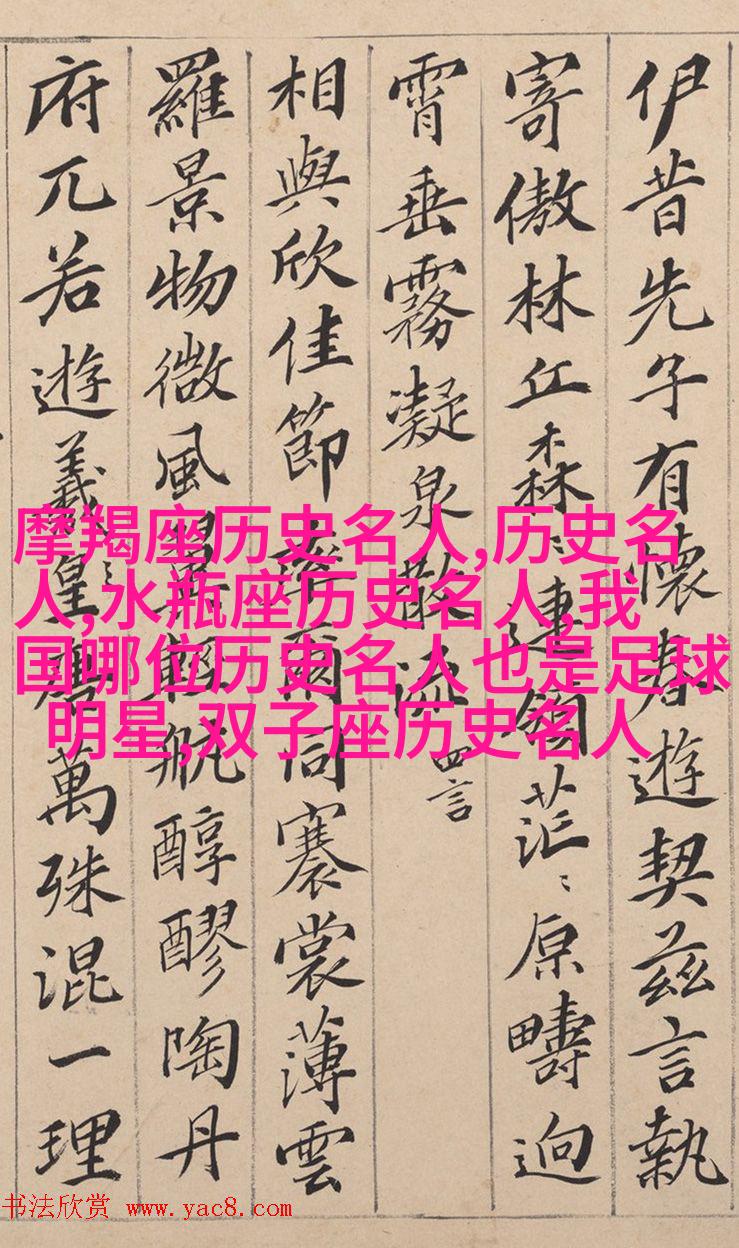 伊昔先子有懷春遊契茲言執
寄傲林丘森〻連嶺茫〻原疇迥
霄垂霧凝泉散流 四言
相與欣佳節率爾同褰裳薄雲
羅景物微風翼輕航醇醪陶丹
府兀若遊羲皇唐萬殊混一理
摩羯座历史名人,历史名
人,水瓶座历史名人,我
国哪位历史名人也是足球
明星,双子座历史名人
书法欣赏 www.yac8.com